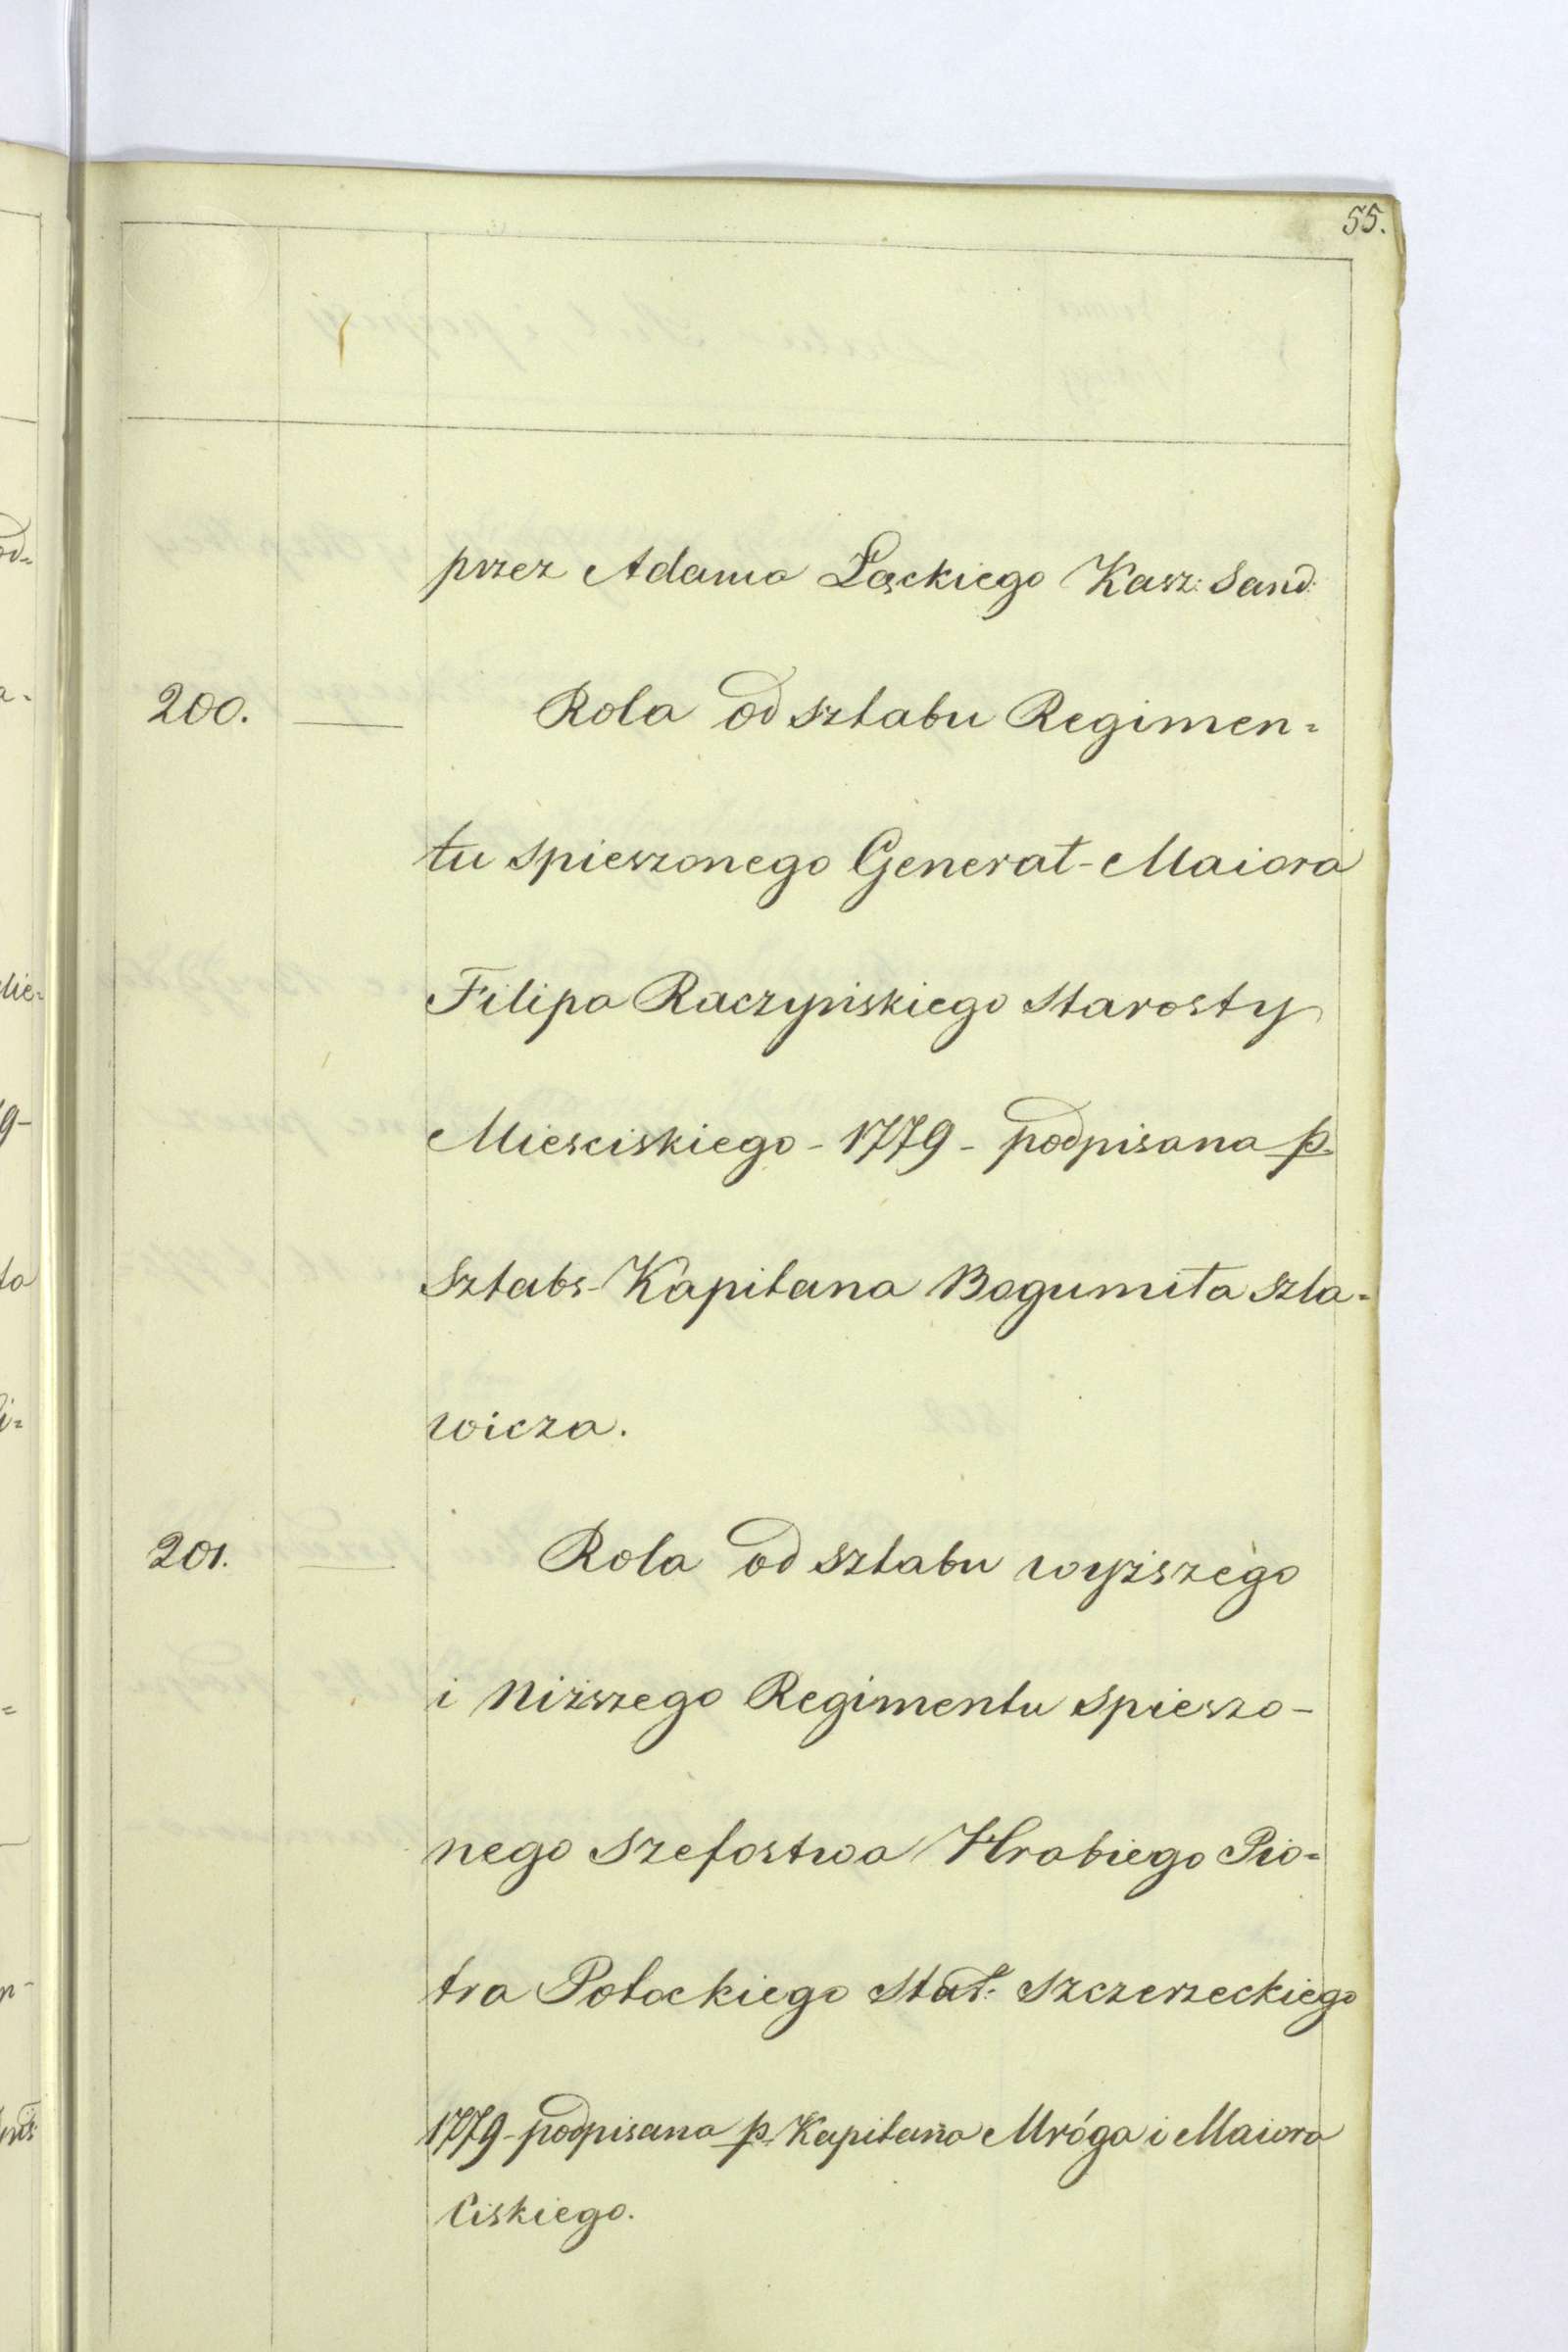 55.
przez Adama Łąckiego Kasz: Sand:
200. — Rola od sztabu Regimen=
tu spieszonego Generał-Maiora
Filipa Raczyńskiego Starosty
Miesciskiego - 1779 - podpisana p.
Sztabs-Kapitana Bogumiła Szla=
wicza.
201. — Rola od sztabu wyższego
i niższego Regimentu spieszo-
nego Szefostwa Hrabiego Pio=
tra Potockiego Stat: Szczerzeckiego
1779 - podpisana p. Kapitana Mróga i Maiora
Ciskiego.